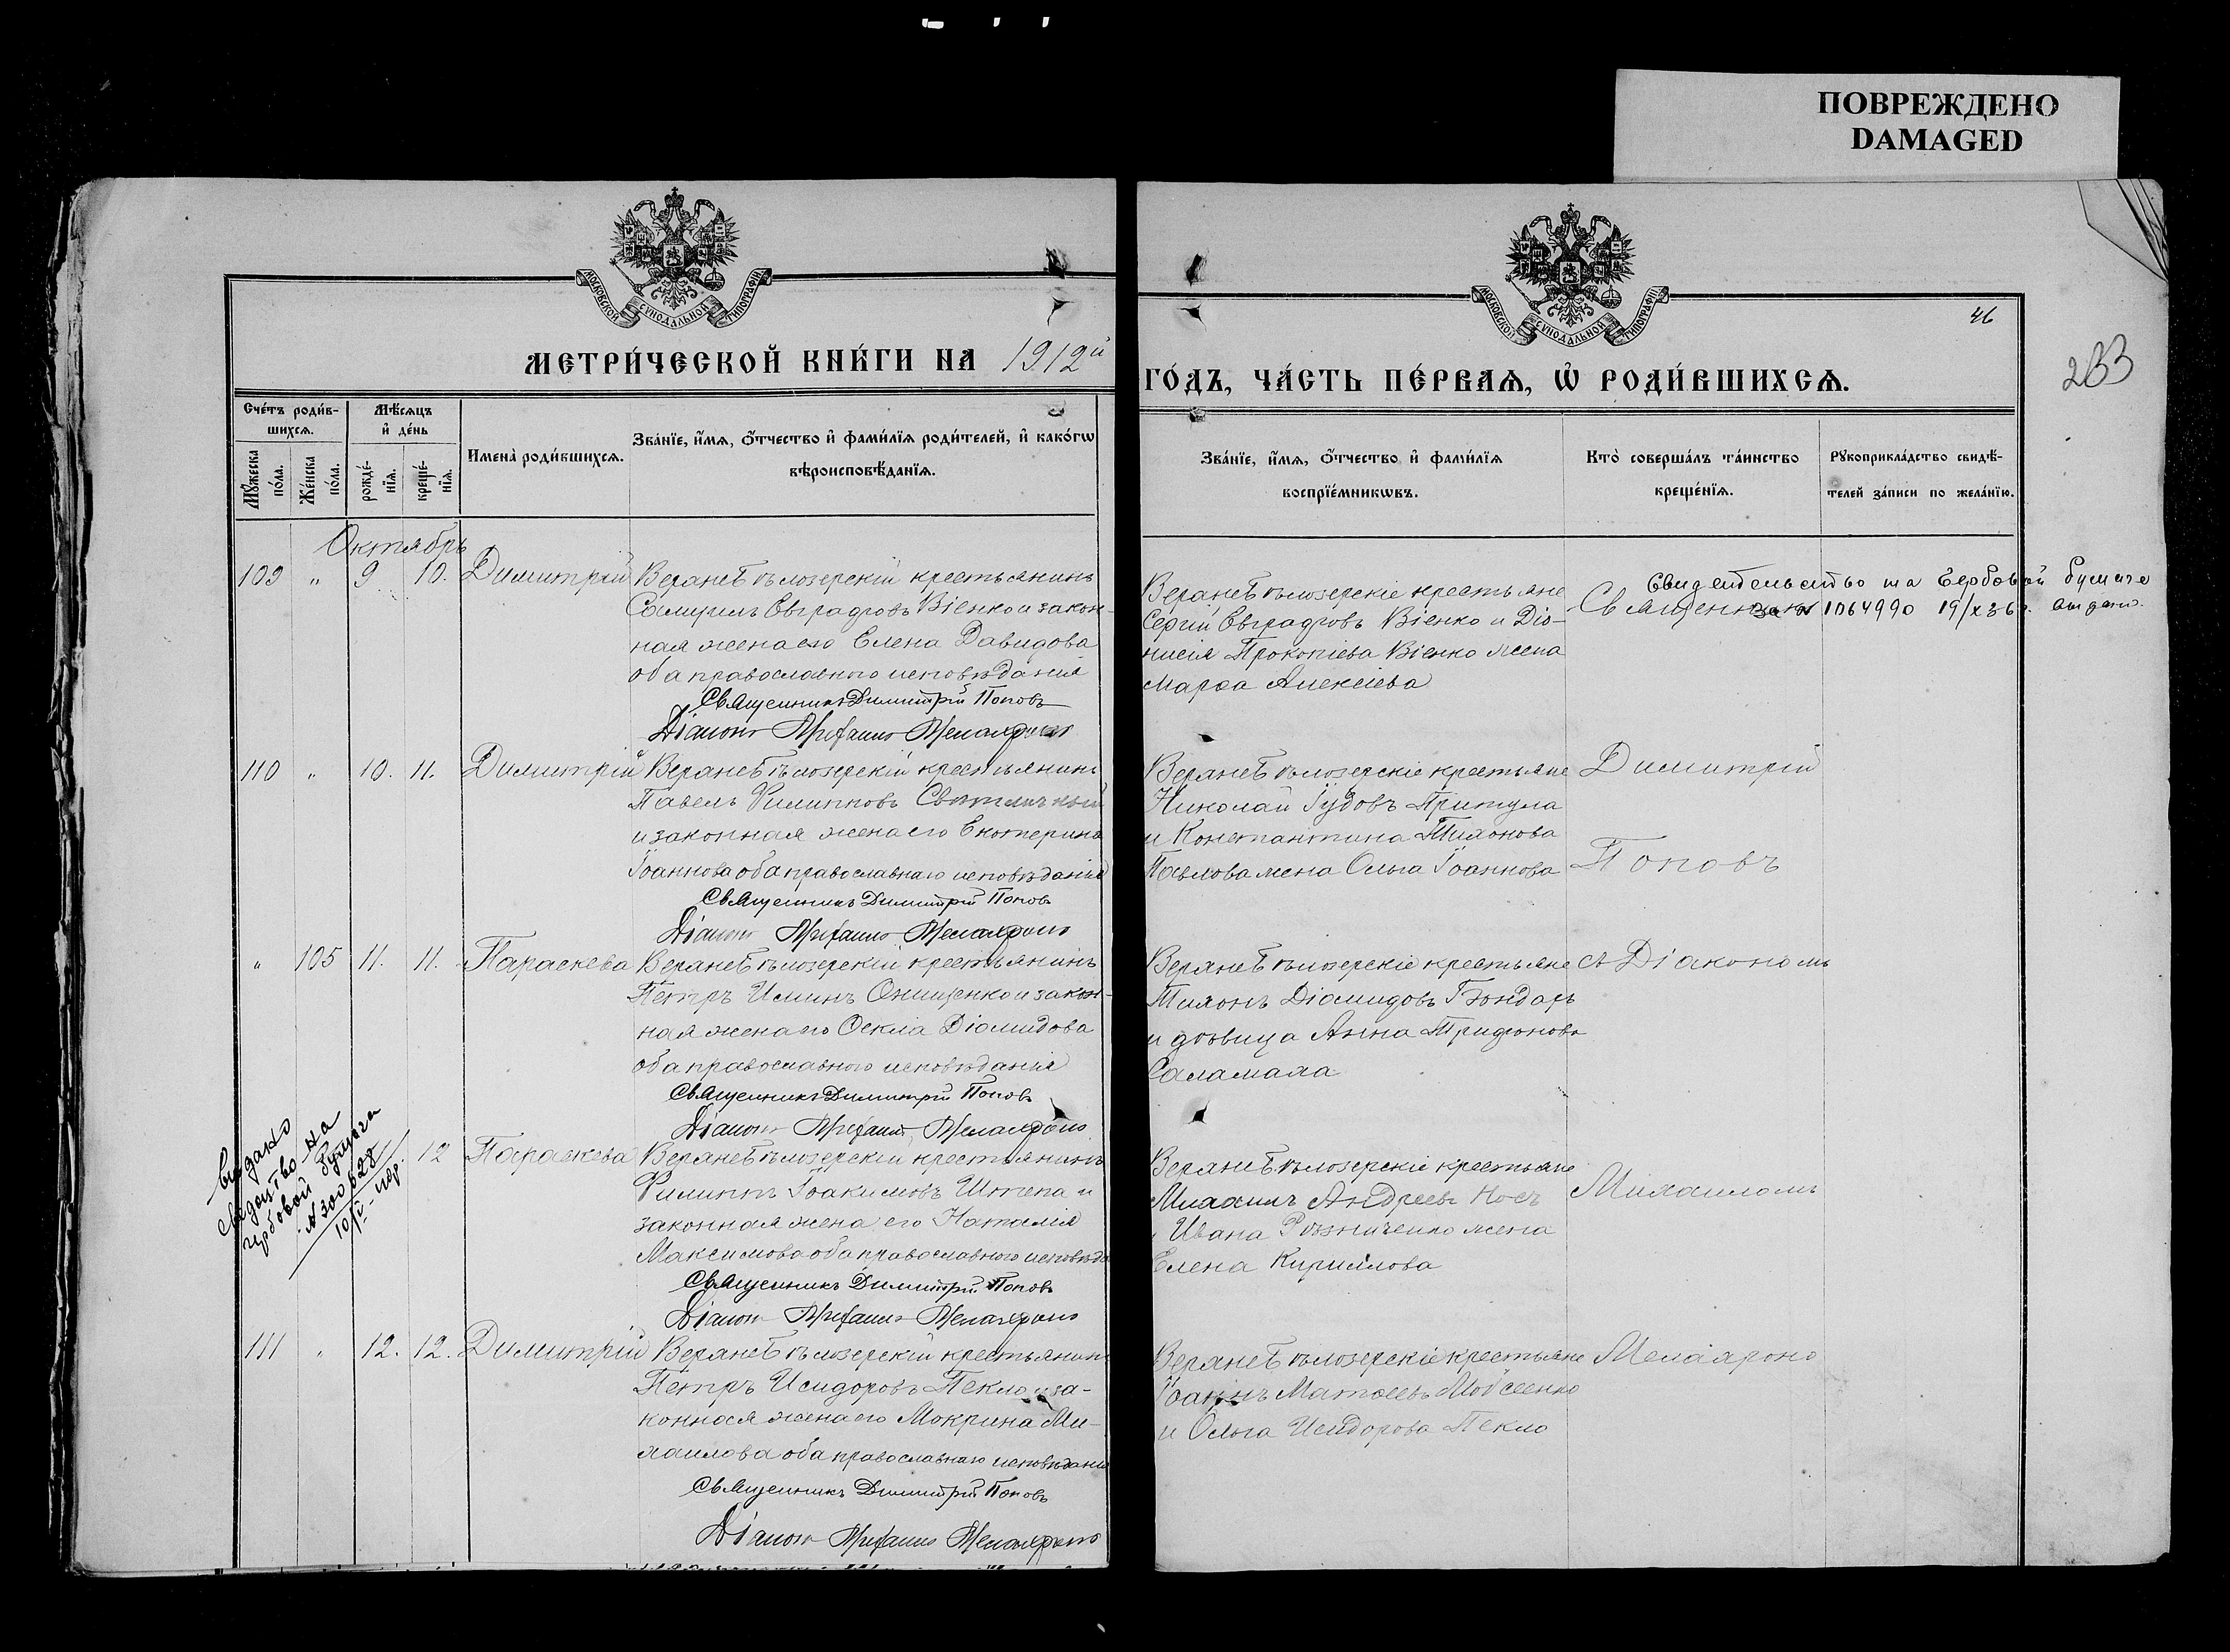 ПОВРЕЖДЕНО
DAMAGED
МОСКОВСКОЙ СѴНОДАЛЬНОЙ ТИПОГРАФІИ
МОСКОВСКОЙ СѴНОДАЛЬНОЙ ТИПОГРАФІИ
46
233
МЕТРИ́ЧЕСКОЙ КНИ́ГИ НА 1912й
ГО́ДЪ, ЧА́СТЬ ПЕ́РВАѦ, Ѡ҆ РОДИ́ВШИХСѦ.
Счетъ роди́в-
шихсѧ.
Мѹ́жеска
по́ла.
Же́нска
по́ла.
Мѣ́сѧцъ
и҆ де́нь
рожде́-
нїѧ.
креще́-
нїѧ.
Имена̀ роди́вшихсѧ.
Зва́нїе, и҆́мѧ, ѻ҆́тчество и҆ фами́лїѧ роди́телей, и҆ како́гѡ
вѣроисповѣ́данїѧ.
Зва́нїе, и҆́мѧ, ѻ҆́тчество и҆ фами́лїѧ
воспрїе́мникѡвъ.
Кто̀ соверша́лъ та́инство
креще́нїѧ.
Рѹкоприкла́дство свидѣ́-
телей за́писи по жела́нїю.
Октябрь
109 „ 9 10. Димитрій
Верхнебѣлозерскій крестьянинъ
Самуилъ Евграфовъ Віенко и закон-
ная жена его Елена Давидова
оба православнаго исповѣданія
Священникъ Димитрій Поповъ
Діаконъ Михаилъ
Верхнебѣлозерскіе крестьяне
Сергій Евграфовъ Віенко и Діо-
нисія Прокопіева Віенко жена
Марѳа Алексіева
Священник
Свидетельство на Гербовой бумаге
за № 1064990 19/X 36 г. выдано.
110 „ 10. 11. Димитрій
Верхнебѣлозерскій крестьянинъ
Павелъ Филипповъ Свѣтличный
и законная жена его Екатерина
Іоаннова оба православнаго исповѣданія
Священникъ Димитрій Поповъ
Діаконъ Михаилъ
Верхнебѣлозерскіе крестьяне
Николай Іудовъ Притула
и Константина Тихонова
Павлова жена Ольга Іоаннова
Димитрій
Поповъ
„ 105 11. 11. Параскева
Верхнебѣлозерскій крестьянинъ
Петръ Ильинъ Онищенко и закон-
ная жена его Ѳекла Діомидова
оба православнаго исповѣданія
Священникъ Димитрій Поповъ
Діаконъ Михаилъ
Верхнебѣлозерскіе крестьяне
Тихонъ Діомидовъ Бондарь
и дѣвица Анна Трифонова
Саламаха
съ Діакономъ
Выдано
свидетство на
гербовой бумаге
№ 300628
12 Параскева
Верхнебѣлозерскій крестьянинъ
Филиппъ Іоакимовъ Штепа и
законная жена его Наталія
Максимова оба православнаго исповѣда
Священникъ Димитрій Поповъ
Діаконъ Михаилъ
Верхнебѣлозерскіе крестьяне
Михаилъ Андреевъ Носъ
Ивана Рѣзниченко жена
Елена Кириллова
Михаиломъ
111 „ 12. 12. Димитрій
Верхнебѣлозерскій крестьянинъ
Петръ Исидоровъ Пекло и за-
конная жена его Мокрина Ми-
хаилова оба православнаго исповѣдан
Священникъ Димитрій Поповъ
Діаконъ Михаилъ
Верхнебѣлозерскіе крестьяне
Іоаннъ Матѳеевъ Мойсеенко
и Ольга Исидорова Пекло